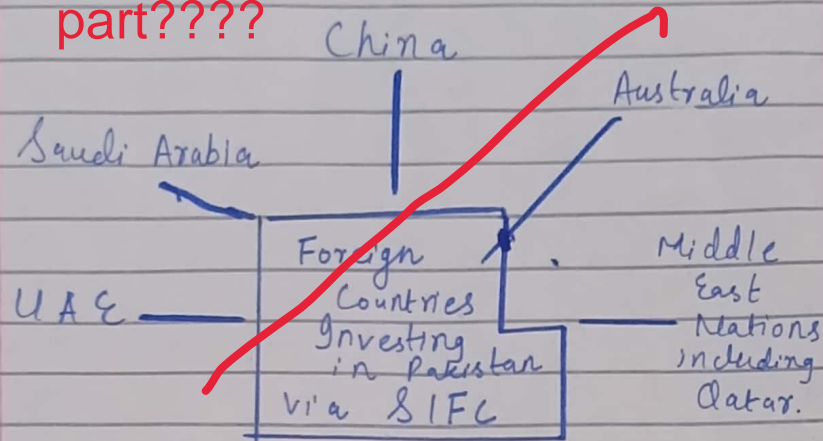 part????
China
Australia
Saudi Arabia
Foreign
Countries
Investing
in Pakistan
via SIFC
UAE
Middle
East
Nations
including
Qatar.